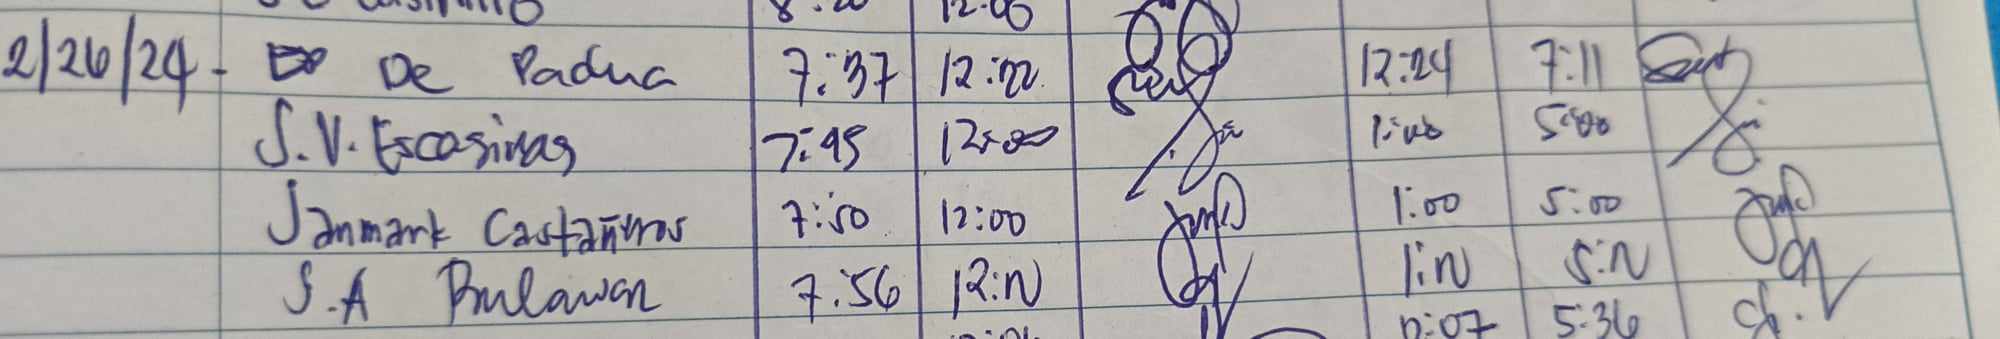 8:20 12:06
2/26/24 - De Padua 7:37 12:22 12:24 7:11
S.V. Escasinas 7:45 12:00 1:00 5:00
Janmark Castañeros 7:50 12:00 1:00 5:00
S.A Bulawan 7:56 12:N 1:N 5:N
5:36